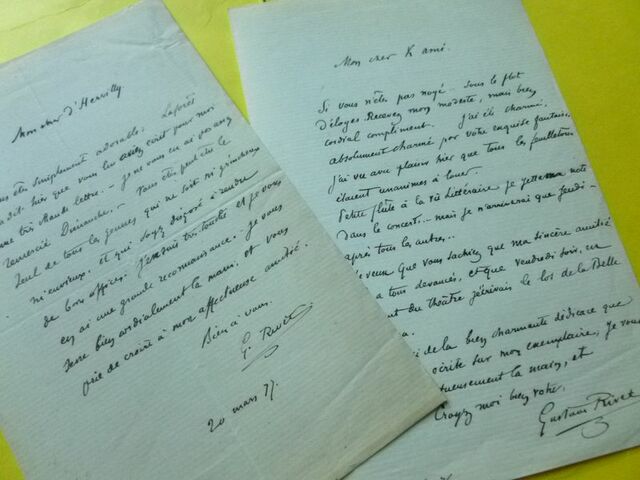 Mon cher d'Hervilly
êtes simplement adorable. Laforêt
dit hier que vous lui aviez écrit pour moi
une très chaude lettre. Je ne vous en ai pas assez
remercié Dimanche. Vous êtes peut être le
seul de tous les jeunes qui ne soit ni grincheux
ni envieux, et qui soyez disposé à rendre
de bons offices. J'en suis très touché et je vous
en ai une grande reconnaissance. Je vous
serre bien cordialement la main, et vous
prie de croire à mon affectueuse amitié.
Bien à vous.
G. Rivet
20 mars 77.
Mon cher ami.
Si vous n'êtes pas noyé sous le flot
d'éloges Recevez mon modeste, mais bien
cordial compliment. J'ai été charmé,
absolument charmé par votre exquise fantaisie
J'ai vu avec plaisir hier que tous les feuilletons
étaient unanimes à louer.
Petite flûte à la vie littéraire je jetterai ma note
dans le concert... mais je n'arriverai que jeudi
après tous les autres...
Je veux que vous sachiez que ma sincère amitié
a tous devancés, et que vendredi soir, en
du théâtre j'écrivais le los de la Belle
de la bien charmante dédicace que
écrite sur mon exemplaire, je vous
la main, et
Croyez moi bien votre.
Gustave Rivet